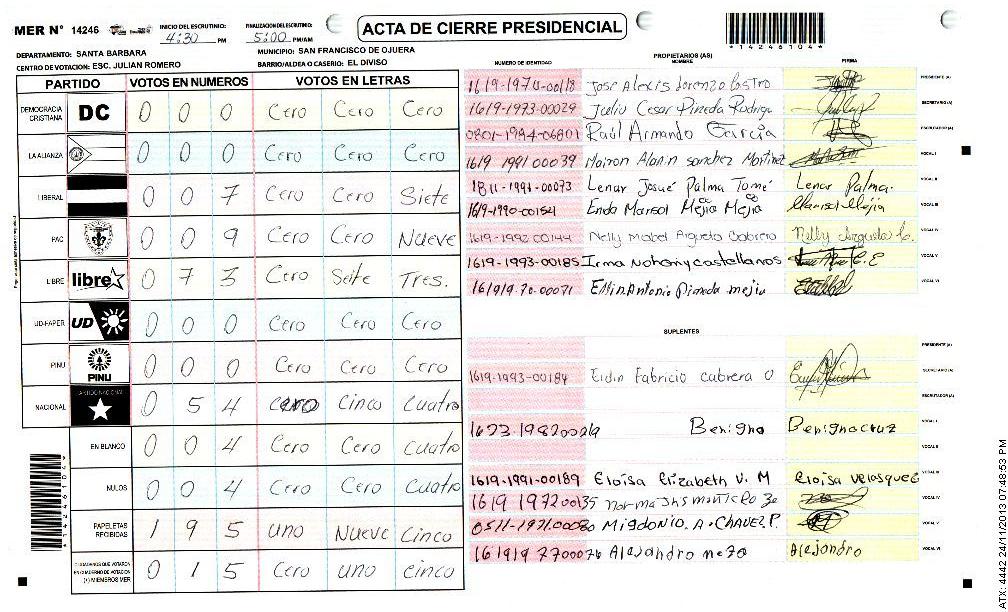 MER N° 14246
INICIO DEL ESCRUTINIO: 4:30 PM
FINALIZACION DEL ESCRUTINIO: 5:00 PM/AM
ACTA DE CIERRE PRESIDENCIAL
*14246104*
DEPARTAMENTO: SANTA BARBARA
MUNICIPIO: SAN FRANCISCO DE OJUERA
CENTRO DE VOTACION: ESC. JULIAN ROMERO
BARRIO/ALDEA O CASERIO: EL DIVISO
PARTIDO VOTOS EN NUMEROS VOTOS EN LETRAS
DEMOCRACIA CRISTIANA DC 0 0 0 Cero Cero Cero
LA ALIANZA 0 0 0 Cero Cero Cero
LIBERAL 0 0 7 Cero Cero Siete
PAC 0 0 9 Cero Cero Nueve
LIBRE libre 0 7 3 Cero Siete Tres.
UD-FAPER UD 0 0 0 Cero Cero Cero
PINU PINU 0 0 0 Cero Cero Cero
NACIONAL PARTIDO NACIONAL 0 5 4 Cero Cinco Cuatro
EN BLANCO 0 0 4 Cero Cero Cuatro
NULOS 0 0 4 Cero Cero Cuatro
PAPELETAS RECIBIDAS 1 9 5 Uno Nueve Cinco
CIUDADANOS QUE VOTARON EN CUADERNO DE VOTACION (+) MIEMBROS MER 0 1 5 Cero uno cinco
*14246104*
PROPIETARIOS (AS)
NUMERO DE IDENTIDAD NOMBRE FIRMA
1619-1974-00118 Jose Alexis Lorenzo Castro PRESIDENTE (A)
1619-1993-00029 Julio Cesar Pineda Rodrigo SECRETARIO (A)
0801-1994-06801 Raúl Armando Garcia ESCRUTADOR (A)
1619 1991 00039 Mairon Alanin Sanchez Martinez VOCAL I
1811-1991-00073 Lenar Josué Palma Tomé Lenar Palma. VOCAL II
1619-1990-00154 Enda Marisol Mejia Mejia Marisol Mejia VOCAL III
1619-1992-00144 Nelly Mabel Argueta Cabrera Nelly Argueta C. VOCAL IV
1619-1993-00185 Irma Nohemy castellanos VOCAL V
161919 70-00071 Antonio Pineda mejia VOCAL VI
SUPLENTES
PRESIDENTE (A)
1619-1993-00184 Eldin Fabricio cabrera O SECRETARIO (A)
ESCRUTADOR (A)
Benigno Benignocruz VOCAL I
VOCAL II
1619-1991-00189 Eloísa Elizabeth V. M Eloisa Velasquez VOCAL III
1619 1972 00135 VOCAL IV
Migdonio. A. CHAVEZ P. VOCAL V
Alejandro meza Alejandro VOCAL VI
ATX: 4442 24/11/2013 07:48:53 PM